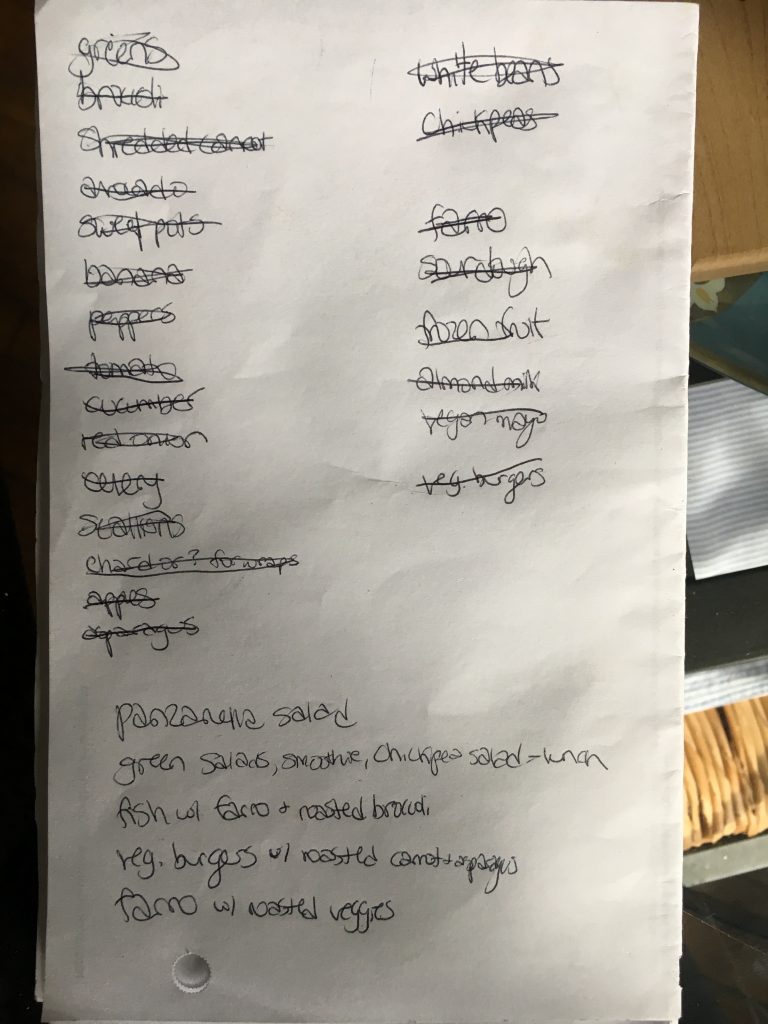 greens
brocoli
shredded carrot
avocado
sweet pots
banana
peppers
tomato
cucumber
red onion
celery
scallions
chard or? for wraps
apples
asparagus
white beans
chickpeas
farro
sourdough
frozen fruit
almond milk
vegan mayo
veg. burgers
panzanella salad
green salads, smoothie, chickpea salad = lunch
fish w/ farro + roasted brocoli
veg. burgers w/ roasted carrot + asparagus
farro w/ roasted veggies